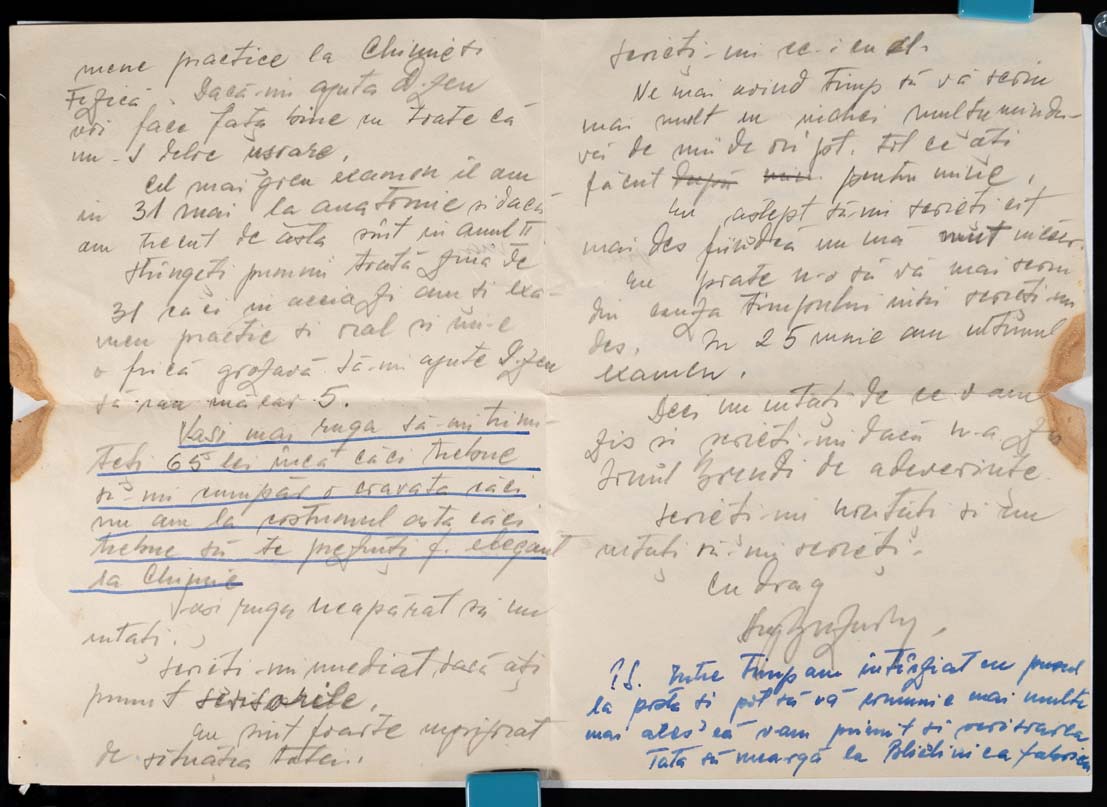 mene practice la Chimie si
Fizică. Dacă-mi ajuta D-zeu
voi face față bine cu toate că
nu-s deloc usoare.
Cel mai greu examen il am
in 31 mai la anatomie si dacă
am trecut de asta sint in anul II
Stringeți pumnii toată ziua de
31 căci in aceia zi am si exa-
men practic si oral si mi-e
o frică grozavă. Să-mi ajute D-zeu
să iau măcar 5.
Vasi mai ruga să-mi trimi-
teti 65 lei incă căci trebue
să-mi cumpăr o cravata căci
nu am la costumul asta căci
trebue să te prezinți f. elegant
la Chimie
Vasi ruga neapărat să nu
uitați.
Scrieti-mi imediat dacă ați
primit scrisorile.
Eu sint foarte ingrijorat
de situatia tatei.
Scrieți-mi ce-i cu el.
Ne mai avind timp să vă scriu
mai mult in incheiere multumindu-
vă de mii de ori pt. tot ce ați
făcut după pentru mine.
Eu astept să-mi scrieți cit
mai des fiindcă nu mă simt
Eu poate n-o să vă mai scriu
din cauza timpului insă scrieti-mi
des. In 25 maie am ultimul
examen.
Deci nu uitați de ce v-am
zis si scrieti-mi dacă n-a
trimis de adeverinte.
Scrieti-mi noutăți si nu
uitați să-mi scrieți.
Cu drag
P.S. Intre timp am intirziat cu pusul
la posta si pot să vă comunic mai multe
mai ales că v-am primit si scrisoarea
Tata să meargă la Policlinica fabricii